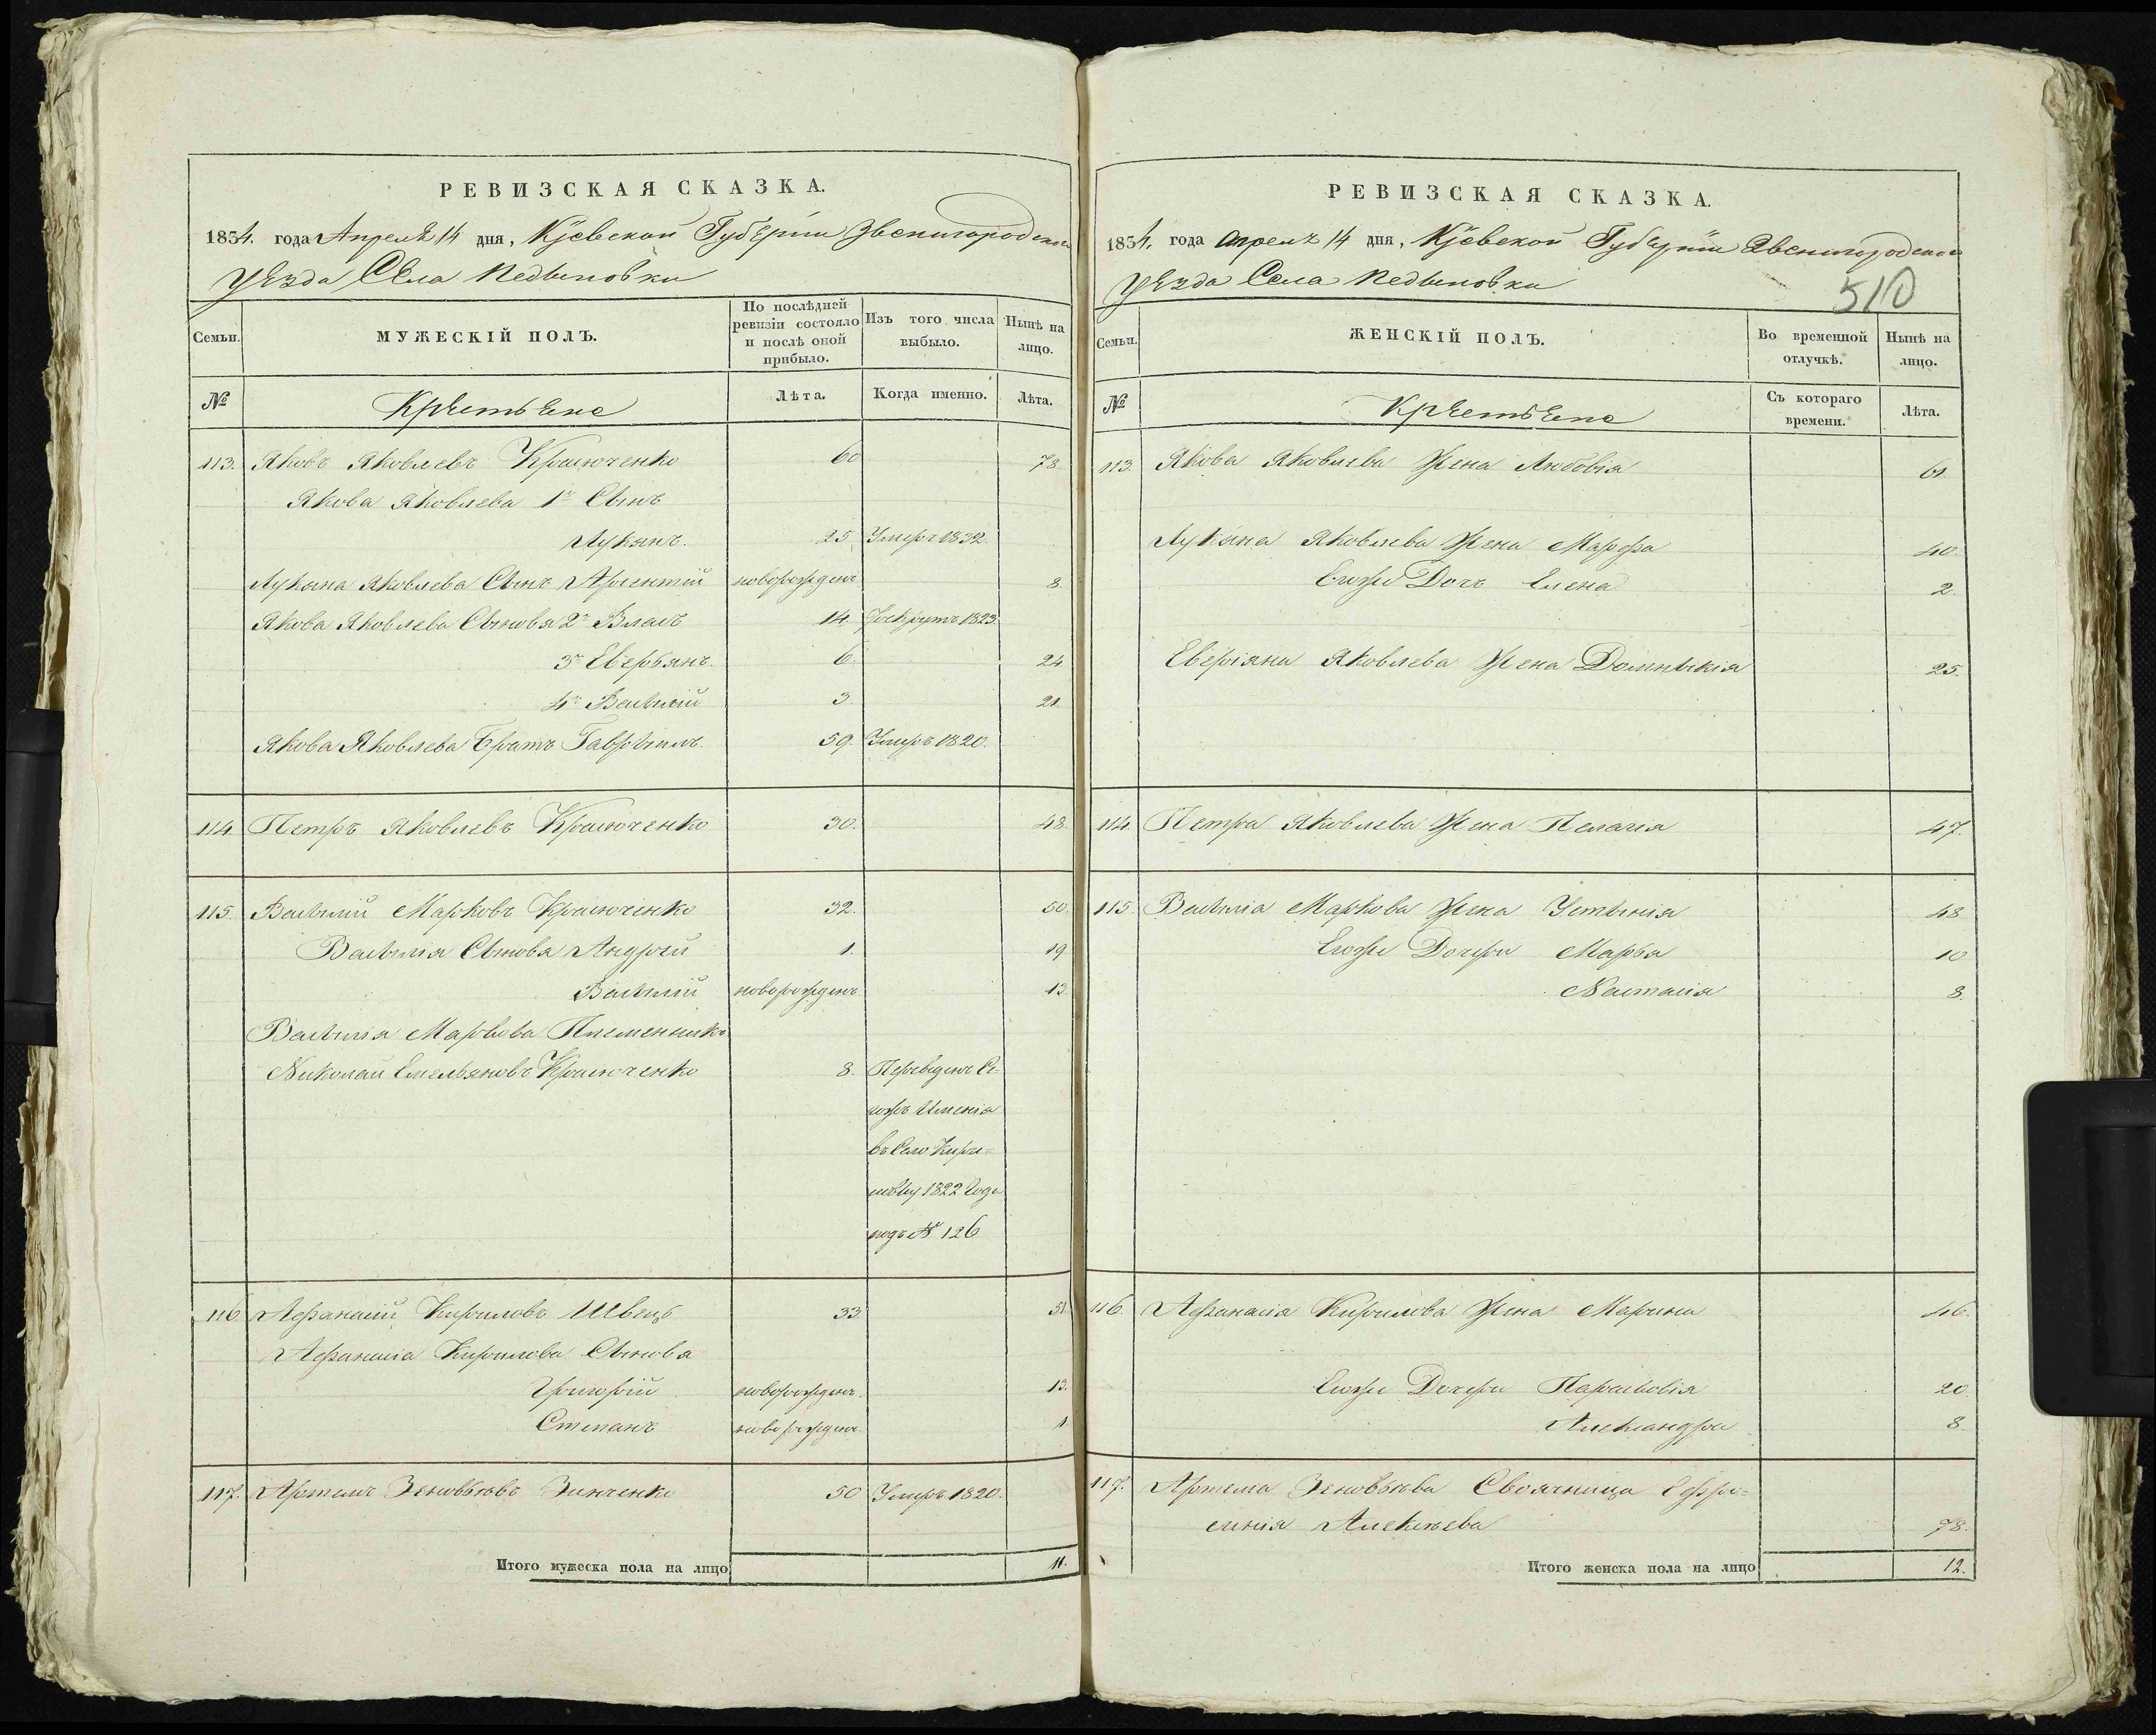 РЕВИЗСКАЯ СКАЗКА.
1834. года Апреля 14 дня, Кіевской Губерніи Звенигородскаго
Уезда Села Педыновки
Семьи.
МУЖЕСКІЙ ПОЛЪ.
По послѣдней ревизіи состояло и послѣ оной прибыло.
Изъ того числа выбыло.
Нынѣ на лицо.
№
Крестьяне
Лѣта.
Когда именно.
Лѣта.
113. Яковъ Яковлевъ Краснюченко 60 78.
Якова Яковлева 1й Сынъ
Лукянъ. 25 Умеръ 1832.
Лукяна Яковлева Сынъ новорожденъ 8.
Якова Яковлева Сыновья 2й Власъ 14. 1823.
3й Еверьянъ 6. 24
4й Василій 3 21.
Якова Яковлева Братъ Гаврыилъ 59. Умеръ 1820.
114. Петръ Яковлевъ 30. 48.
115. Василій Марковъ 32. 50.
Василія Сыновья Андрей 1. 19
Василій новорожденъ 13.
Василія Маркова Племенникъ
Николай Емельяновъ 8. Переведенъ Се-
гожъ Именія
въ Село Кири-
ловку 1822 Года
подъ № 126
116. Афанасій Кириловъ Швецъ 33. 51.
Афанасія Кирилова Сыновья
Григорій новорожденъ. 13.
Степанъ новорожденъ 1.
117. Артемъ Зеновьевъ Зинченко 50 Умеръ 1820.
Итого мужеска пола на лицо 11.
РЕВИЗСКАЯ СКАЗКА.
1834. года Апреля 14 дня, Кіевской Губерніи Звенигородскаго
Уезда Села Педыновки
510
Семьи.
ЖЕНСКІЙ ПОЛЪ.
Во временной отлучкѣ.
Нынѣ на лицо.
№
Крестьяне
Съ котораго времени.
Лѣта.
113. Якова Яковлева Жена Любовія 61.
Лукяна Яковлева Жена Марфа 40.
Егоже Дочь Елена 2.
Еверіяна Яковлева Жена Домныкія 25.
114. Петра Яковлева Жена Пелагія 47.
115 Василія Маркова Жена Устынія 48
Егоже Дочери Марья 10
Настасія 8.
116. Афанасія Кирилова Жена Марина 46.
Егоже Дочери Парасковія 20.
Александра 8.
117. Артема Зеновьева Своячница Ефро-
синія Алексеева 78.
Итого женска пола на лицо 12.